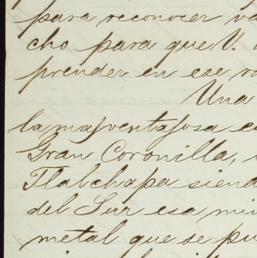 para reconocer va
cho para que V.
prender en ese ra
Una
la mas ventajosa e
Gran Coronilla,
Tlalchapa siend
del Sur esa min
metal que se pu